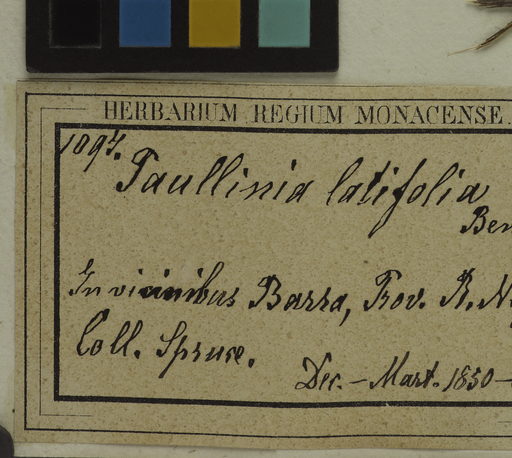 HERBARIUM REGIUM MONACENSE.
1097.
Paullinia latifolia
Ben
In vicinibus Barra, Prov. R. N
Coll. Spruce.
Dec. - Mart. 1850 -